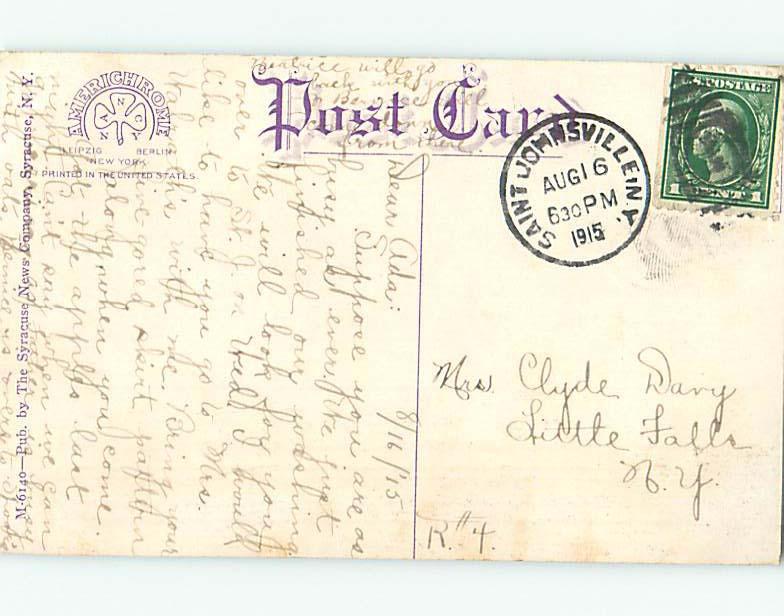 Post Card
AMERICHROME
A N C Y N
LEIPZIG BERLIN
NEW YORK
PRINTED IN THE UNITED STATES
M-6140—Pub. by The Syracuse News Company, Syracuse, N. Y.
SAINT JOHNSVILLE, N.Y.
AUG 16
630 PM
1915
U.S. POSTAGE
1 CENT 1
Mrs Clyde Davy
Little Falls
N. Y.
R. #4.
8/16/'15
Dear Ada:
Suppose you are as
busy as ever. We just
finished our washing
We will look for you
over to St. J. on Wed. I would
like to have you go to Mrs.
with me. Bring your
gored skirt pattern
along when you come.
the apples last
night. Can't say when we can
Beatrice will go
back with you
from there